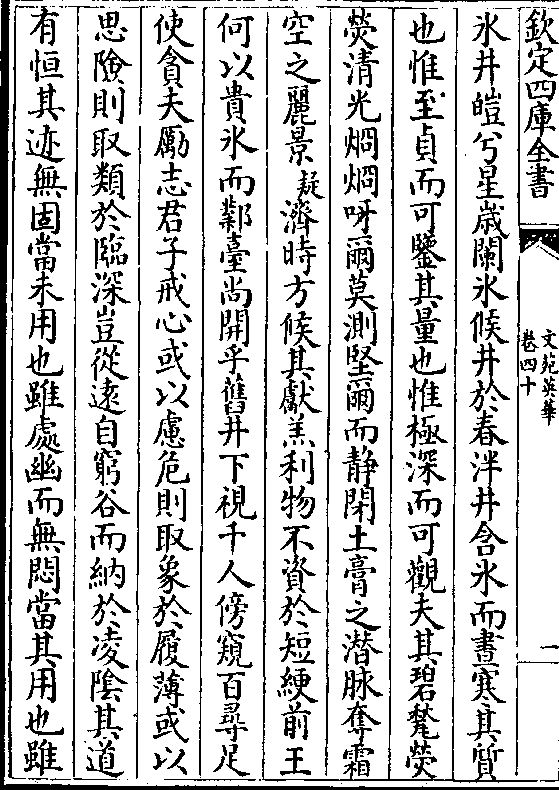 欽定四庫全書
文苑英華
卷四十
一
氷井皚兮星歳闌氷候井於春泮井含氷而晝寒其質
也惟至貞而可鑒其量也惟極深而可觀夫其碧甃熒
熒清光烱烱呀爾莫測堅爾而静閉土膏之潜脉奪霜
空之麗景疑濟時方候其獻羔利物不資於短綆前王
何以貴氷而鄴臺尚開乎舊井下視千人傍窺百尋足
使貪夫勵志君子戒心或以慮危則取象於履薄或以
思險則取類於臨深豈從遠自窮谷而納於凌陰其道
有恒其迹無固當未用也雖處幽而無悶當其用也雖